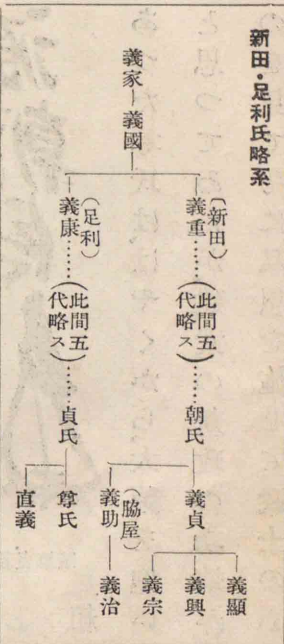 新田・足利氏略系
義家
義國
(新田)
義重
(此間五代略ス)
朝氏
義貞
義顯
義興
義宗
(脇屋)
義助
義治
(足利)
義康
(此間五代略ス)
貞氏
尊氏
直義